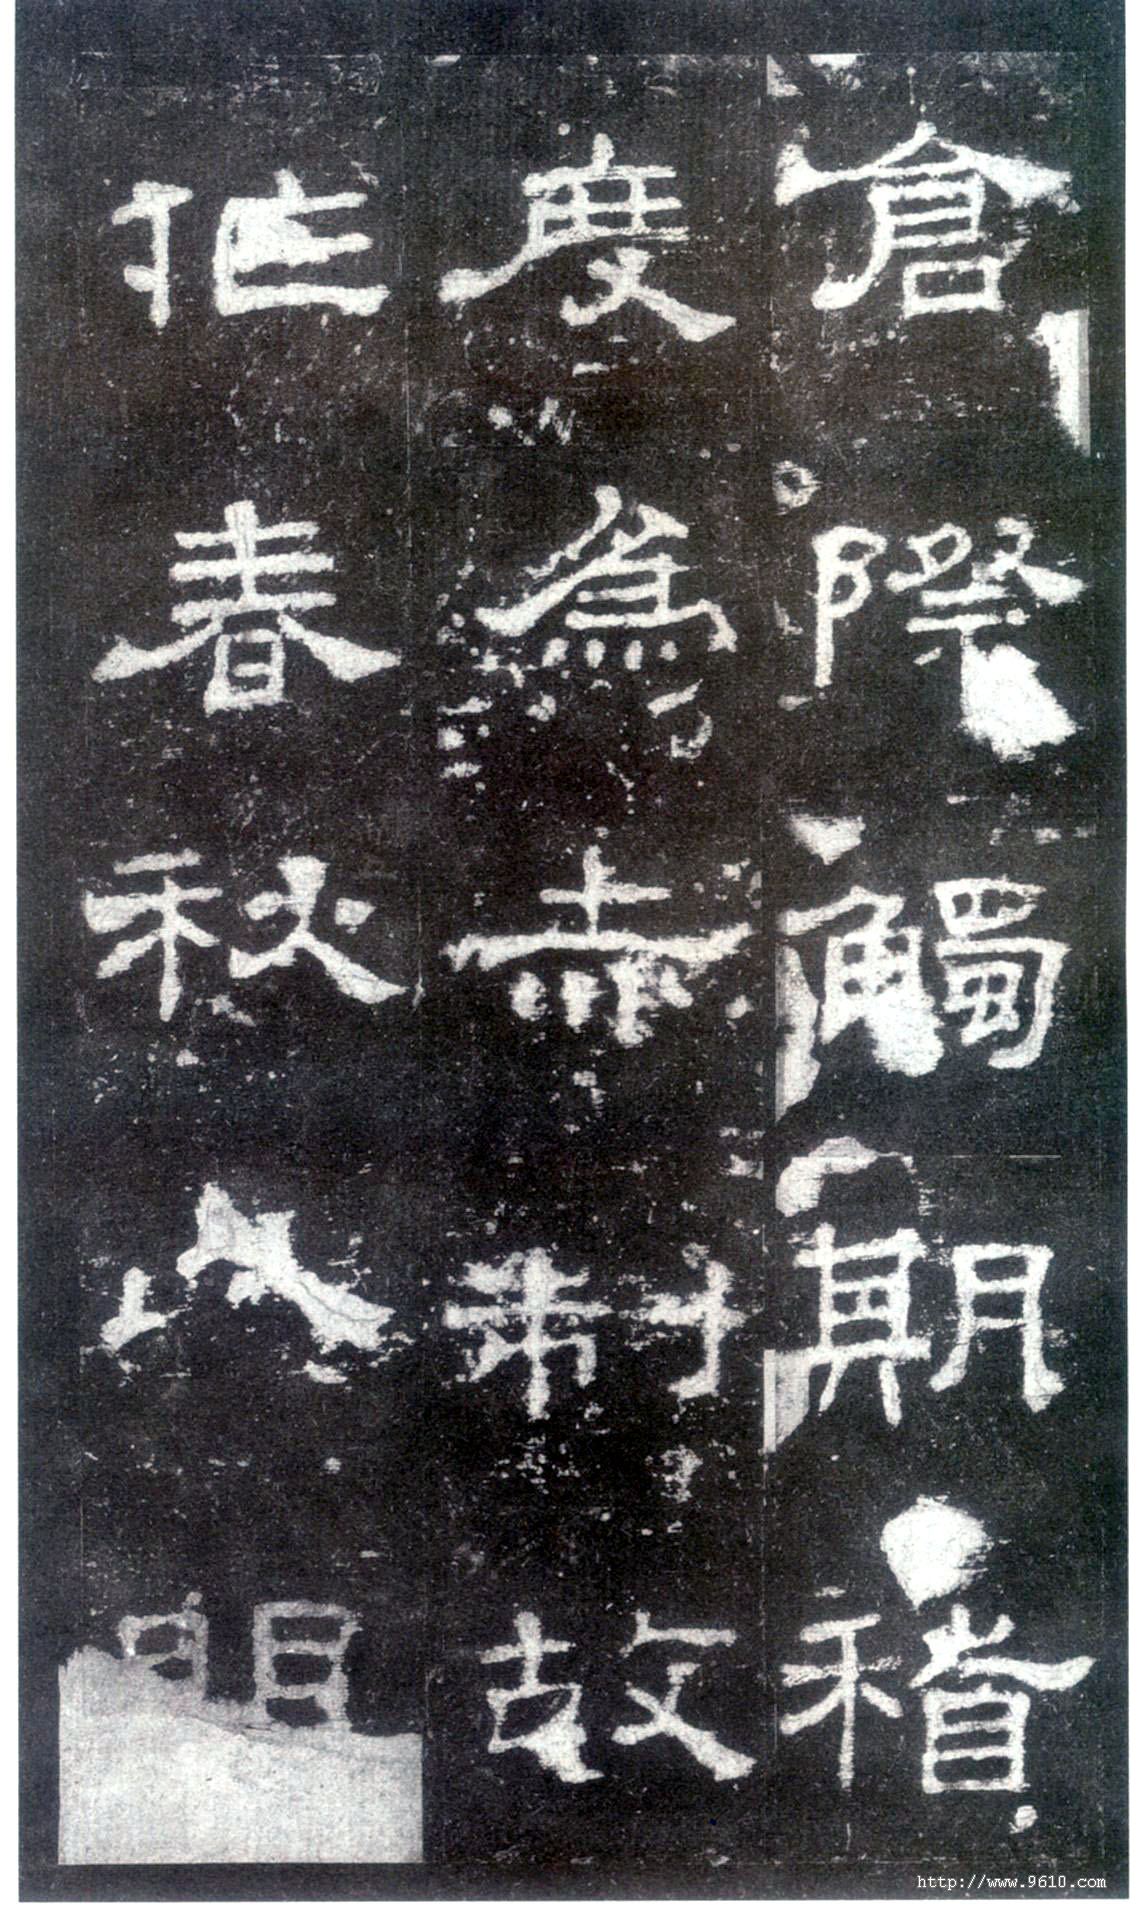 倉際觸期稽
度為赤制故
作春秋以明
http://www.9610.com